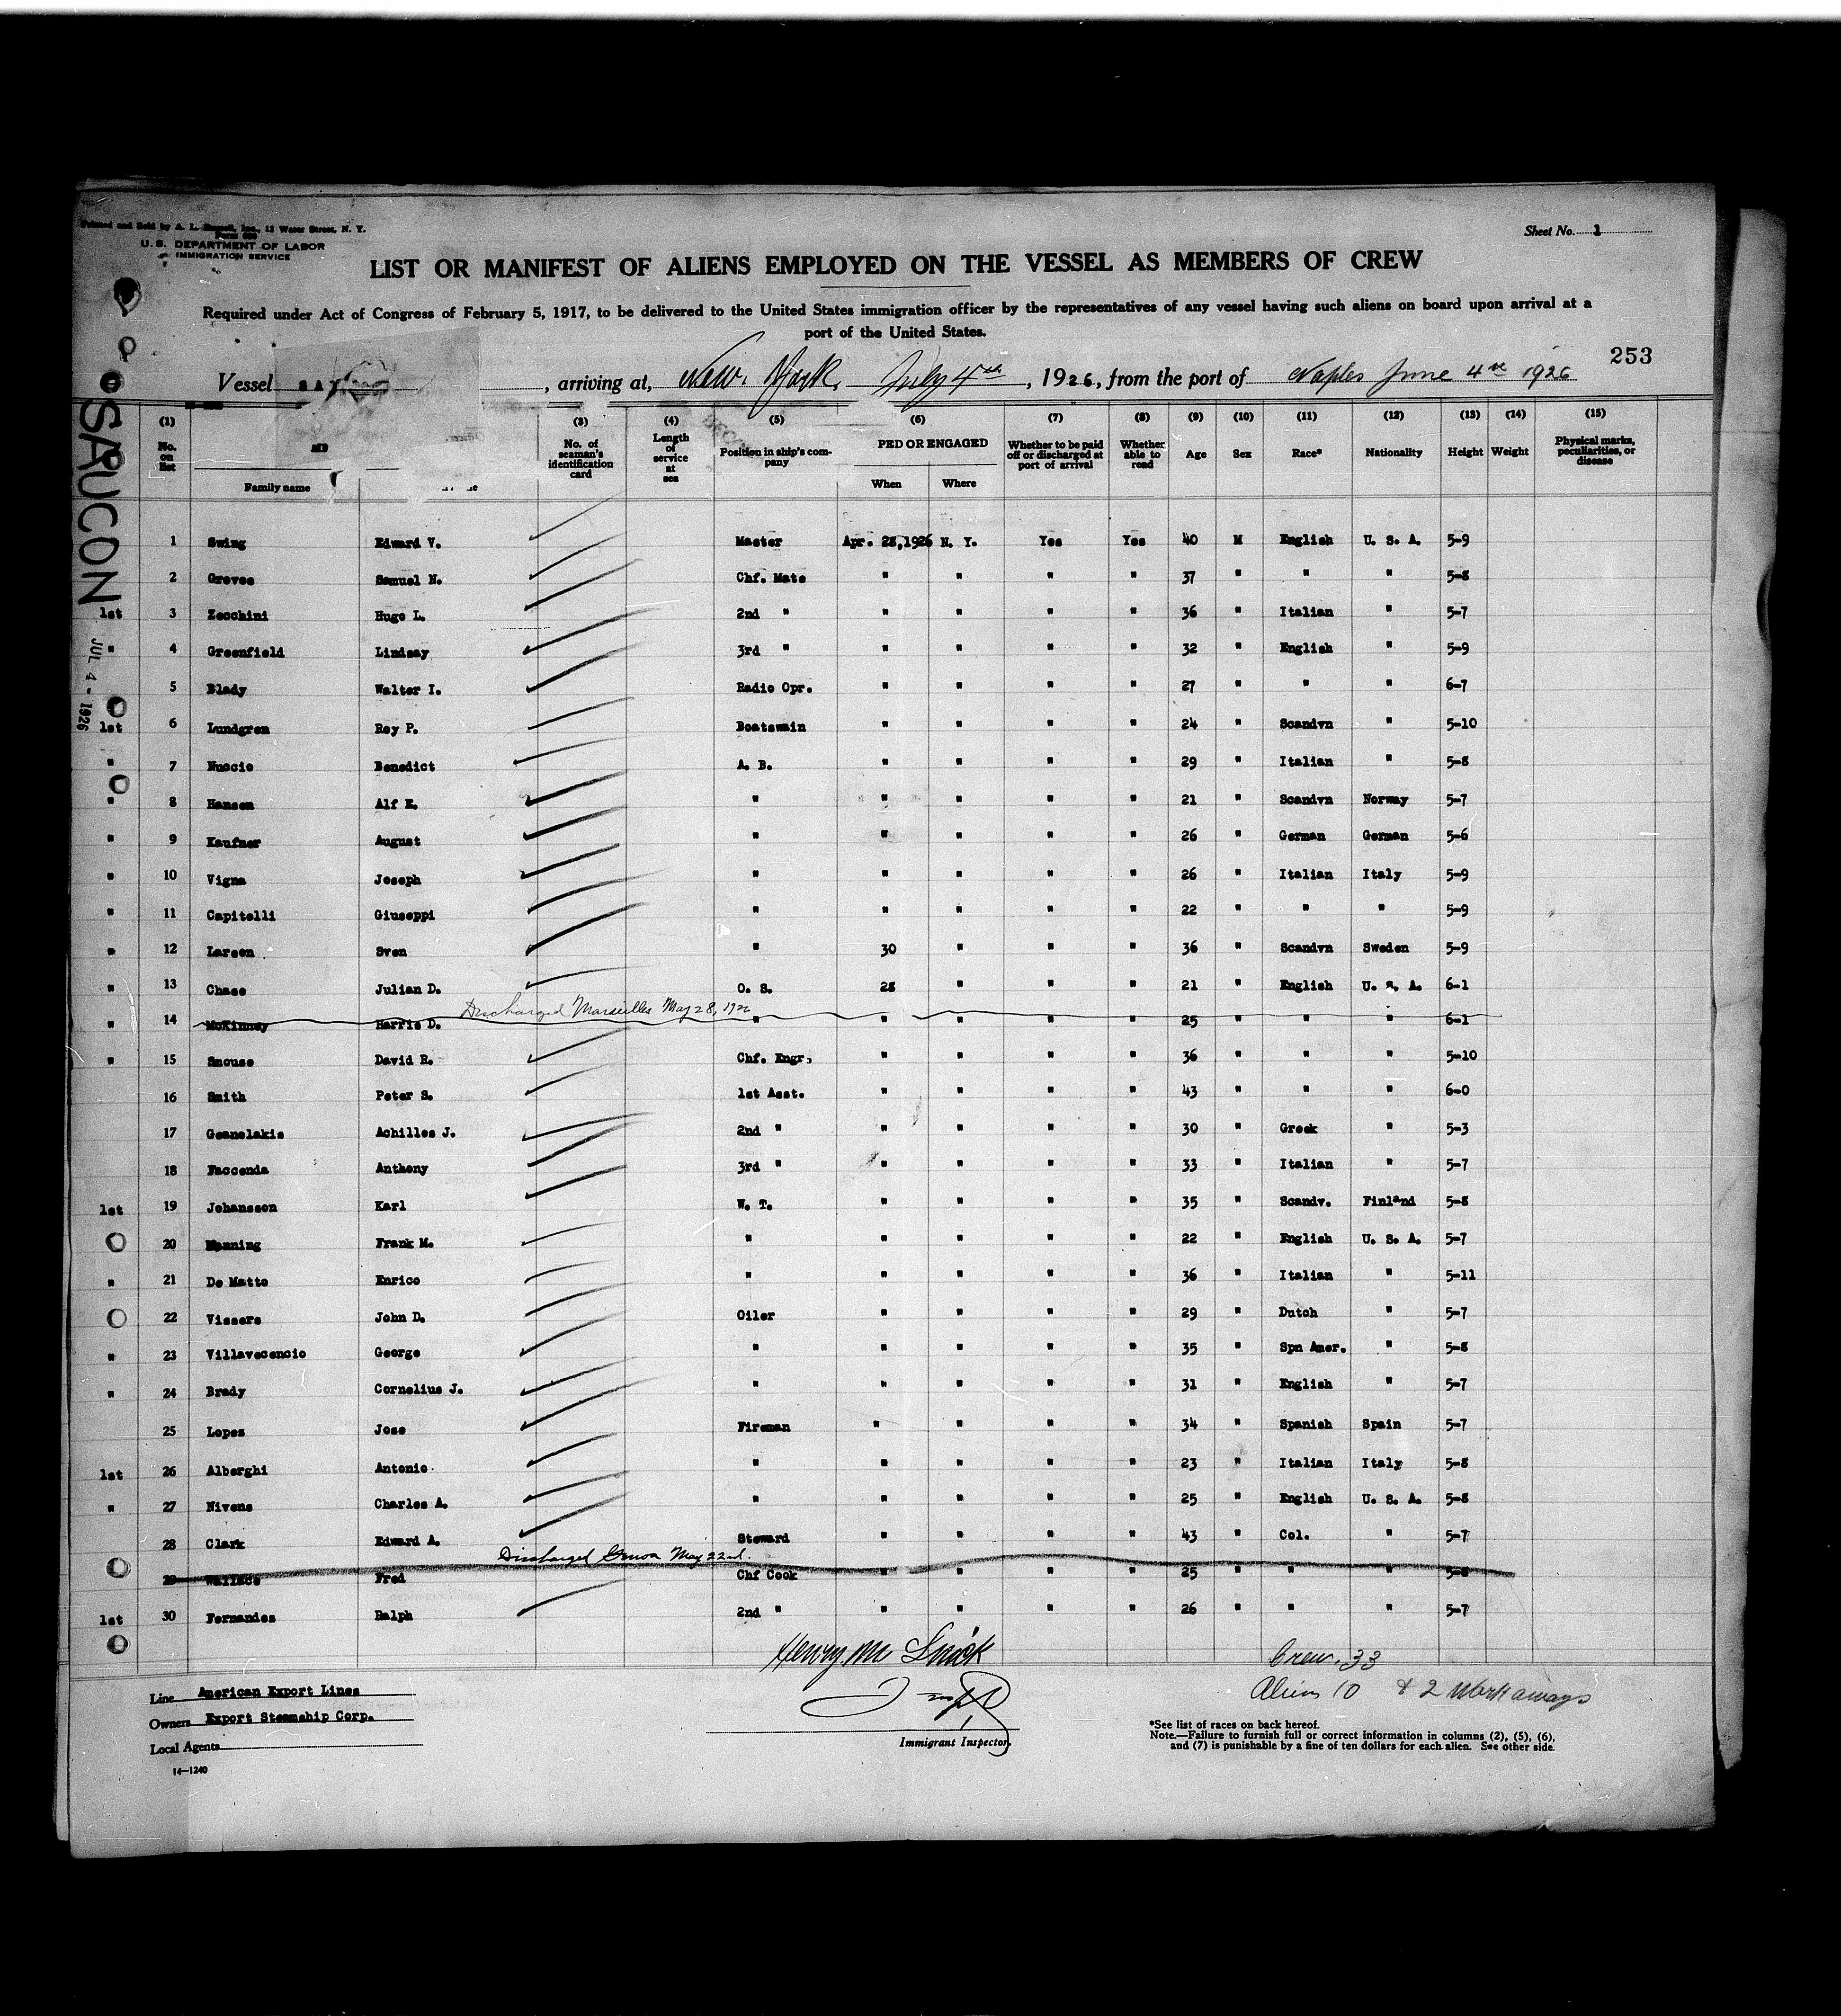 Printed and Sold by A. L. Russell, Inc., 12 Water Street, N. Y.
U. S. DEPARTMENT OF LABOR
IMMIGRATION SERVICE
Sheet No. 1
LIST OR MANIFEST OF ALIENS EMPLOYED ON THE VESSEL AS MEMBERS OF CREW
Required under Act of Congress of February 5, 1917, to be delivered to the United States immigration officer by the representatives of any vessel having such aliens on board upon arrival at a
port of the United States.
253
Vessel SA , arriving at, New York, July 4th, 1926, from the port of Naples June 4th 1926
SAUCON
JUL 4 - 1926
(1) (3) (4) (5) (6) (7) (8) (9) (10) (11) (12) (13) (14) (15)
No. on list Family name No. of seaman's identification card Length of service at sea Position in ship's company PED OR ENGAGED When Where Whether to be paid off or discharged at port of arrival Whether able to read Age Sex Race* Nationality Height Weight Physical marks, peculiarities, or disease
1 Swing Edward V. Master Apr. 28,1926 N. Y. Yes Yes 40 M English U. S. A. 5-9
2 Groves Samuel N. Chf. Mate " " " " 37 " " " 5-8
1st 3 Zecchini Hugo L. 2nd " " " " " 36 " Italian " 5-7
" 4 Greenfield Lindsay 3rd " " " " " 32 " English " 5-9
5 Blady Walter I. Radio Opr. " " " " 27 " " " 6-7
1st 6 Lundgren Roy P. Boatswain " " " " 24 " Scandvn " 5-10
" 7 Nuccio Benedict A. B. " " " " 29 " Italian " 5-8
" 8 Hansen Alf E. " " " " " 21 " Scandvn Norway 5-7
" 9 Kaufner August " " " " " 26 " German German 5-6
" 10 Vigna Joseph " " " " " 26 " Italian Italy 5-9
" 11 Capitelli Giuseppi " " " " " 22 " " " 5-9
" 12 Larsen Sven " 30 " " " 36 " Scandvn Sweden 5-9
" 13 Chase Julian D. O. S. 28 " " " 21 " English U. S. A. 6-1
Discharged Marseilles May 28, 1926
" 14 McKinney Harris D. " " " " " 25 " " " 6-1
" 15 Smouse David R. Chf. Engr. " " " " 36 " " " 5-10
16 Smith Peter S. 1st Asst. " " " " 43 " " " 6-0
17 Geanelakis Achilles J. 2nd " " " " " 30 " Greek " 5-3
18 Faccenda Anthony 3rd " " " " " 33 " Italian " 5-7
1st 19 Johansson Karl W. T. " " " " 35 " Scandv. Finland 5-8
20 Manning Frank M. " " " " " 22 " English U. S. A. 5-7
" 21 De Matto Enrico " " " " " 36 " Italian " 5-11
22 Vissers John D. Oiler " " " " 29 " Dutch " 5-7
" 23 Villavecencio George " " " " " 35 " Spn Amer. " 5-8
" 24 Brady Cornelius J. " " " " " 31 " English " 5-7
25 Lopez Jose Fireman " " " " 34 " Spanish Spain 5-7
1st 26 Alberghi Antonio " " " " " 23 " Italian Italy 5-8
" 27 Nivens Charles A. " " " " " 25 " English U. S. A. 5-8
28 Clark Edward A. Steward " " " " 43 " Col. " 5-7
Discharged Genoa May 22nd.
29 Wallace Fred Chf Cook " " " " 25 " " " 5-8
1st 30 Fernandes Ralph 2nd " " " " " 26 " " " 5-7
Crew. 33
Aliens 10 & 2 Workaways
Line American Export Lines
Owners Export Steamship Corp.
Local Agents
Immigrant Inspector.
14-1240
*See list of races on back hereof.
Note.—Failure to furnish full or correct information in columns (2), (5), (6),
and (7) is punishable by a fine of ten dollars for each alien. See other side.